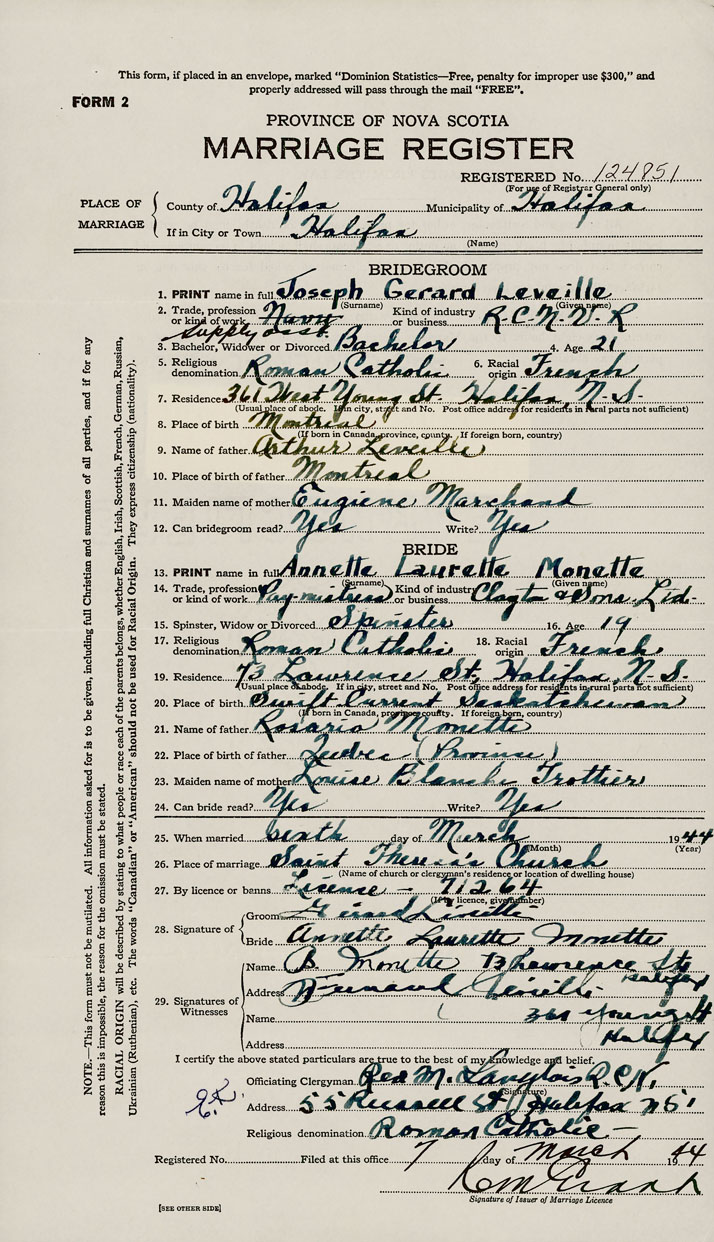 This form, if placed in an envelope, marked "Dominion Statistics—Free, penalty for improper use $300," and
properly addressed will pass through the mail "FREE".
FORM 2
PROVINCE OF NOVA SCOTIA
MARRIAGE REGISTER
REGISTERED No. 124851
(For use of Registrar General only)
PLACE OF MARRIAGE
County of Halifax Municipality of Halifax
If in City or Town Halifax
(Name)
BRIDEGROOM
1. PRINT name in full Joseph Gerard Leveille
(Surname) (Given name)
2. Trade, profession or kind of work Navy Supply asst. Kind of industry or business R.C.N.V.R
3. Bachelor, Widower or Divorced Bachelor 4. Age 21
5. Religious denomination Roman Catholic 6. Racial origin French
7. Residence 361 West Young St. Halifax, N.S.
(Usual place of abode. If in city, street and No. Post office address for residents in rural parts not sufficient)
8. Place of birth Montreal
(If born in Canada, province, county. If foreign born, country)
9. Name of father Arthur Leveille
10. Place of birth of father Montreal
11. Maiden name of mother Eugiene Marchand
12. Can bridegroom read? Yes Write? Yes
BRIDE
13. PRINT name in full Annette Laurette Monette
(Surname) (Given name)
14. Trade, profession or kind of work Pay-mistress Kind of industry or business Clayton & Sons. Ltd.
15. Spinster, Widow or Divorced Spinster 16. Age 19
17. Religious denomination Roman Catholic 18. Racial origin French
19. Residence 73 Lawrence St, Halifax, N-S.
(Usual place of abode. If in city, street and No. Post office address for residents in rural parts not sufficient)
20. Place of birth Swift-Current Saskatchewan
(If born in Canada, province county. If foreign born, country)
21. Name of father Rosario Monette
22. Place of birth of father Quebec (Province)
23. Maiden name of mother Louise Blanche Trottier
24. Can bride read? Yes Write? Yes
25. When married sixth day of March 1944
(Month) (Year)
26. Place of marriage Saint Theresa's Church
(Name of church or clergyman's residence or location of dwelling house)
27. By licence or banns License - 71264
(If by licence, give number)
28. Signature of
Groom Gérard Léveillé
Bride Annette Laurette Monette
29. Signatures of Witnesses
Name B. Monette 73 Lawrence St.
Halifax
Address Fernand Leveille
Name 361 Young St
Address Halifax
I certify the above stated particulars are true to the best of my knowledge and belief.
Officiating Clergyman Rev M. Langlois R.C.N.
(Signature)
Address 55 Russell St, Halifax NS
Religious denomination Roman Catholic -
Registered No. Filed at this office 7 day of March 1944
Signature of Issuer of Marriage Licence
[SEE OTHER SIDE]
NOTE.—This form must not be mutilated. All information asked for is to be given, including full Christian and surnames of all parties, and if for any
reason this is impossible, the reason for the omission must be stated.
RACIAL ORIGIN will be described by stating to what people or race each of the parents belongs, whether English, Irish, Scottish, French, German, Russian,
Ukrainian (Ruthenian), etc. The words "Canadian" or "American" should not be used for Racial Origin. They express citizenship (nationality).